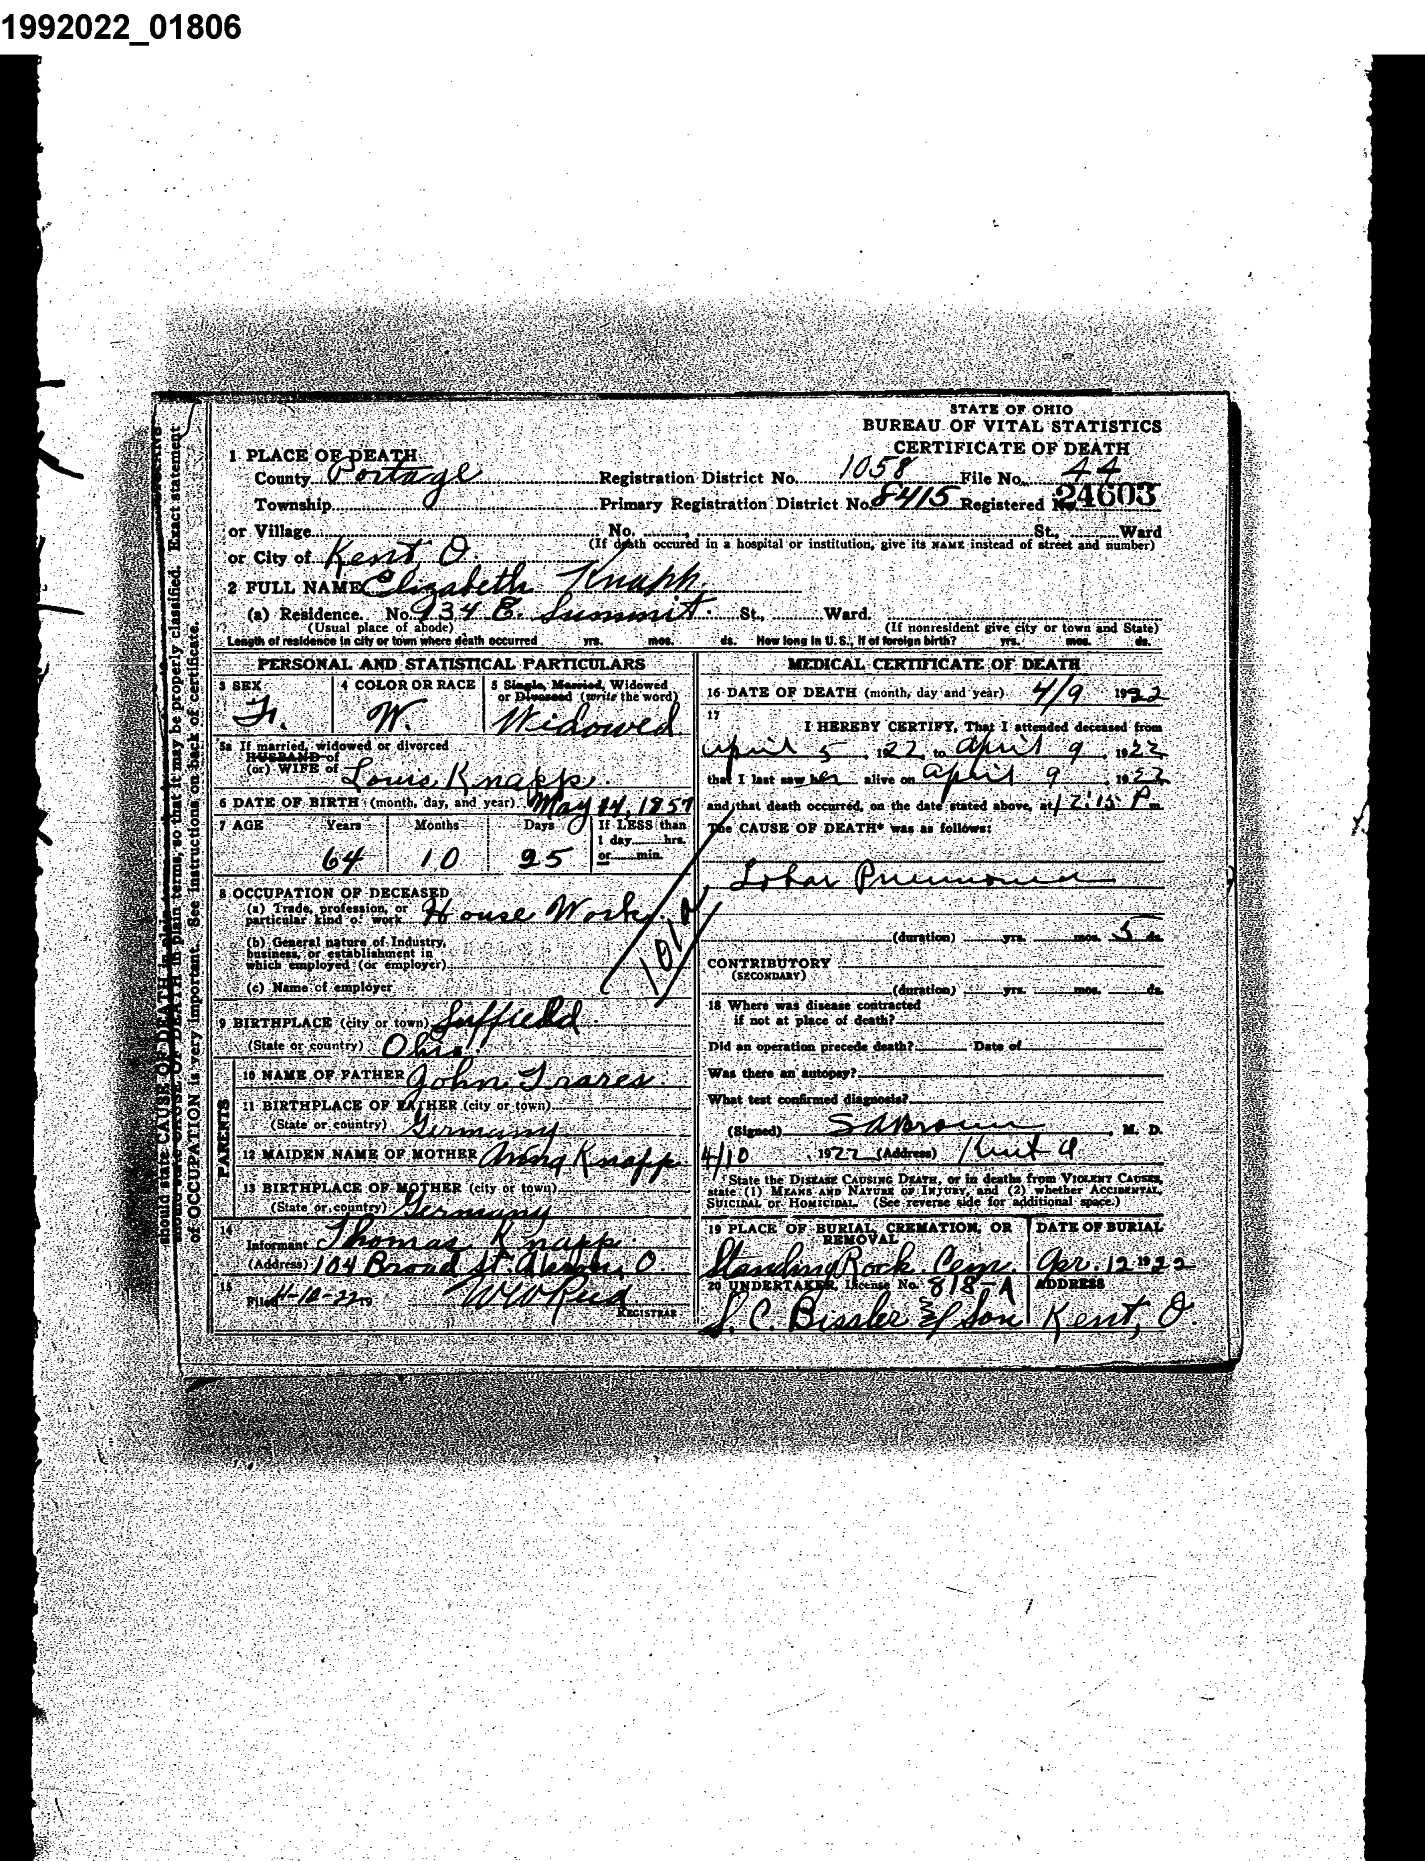 1992022_01806
STATE OF OHIO
BUREAU OF VITAL STATISTICS
CERTIFICATE OF DEATH
1 PLACE OF DEATH
County Portage Registration District No. 1058 File No. 44
Township Primary Registration District No. 8415 Registered No. 24603
or Village No. St., Ward
(If death occured in a hospital or institution, give its NAME instead of street and number)
or City of Kent O.
2 FULL NAME Elizabeth Knapp.
(a) Residence. No. 234 E. Summit. St., Ward.
(Usual place of abode) (If nonresident give city or town and State)
Length of residence in city or town where death occurred yrs. mos. ds. How long in U. S., if of foreign birth? yrs. mos. ds.
PERSONAL AND STATISTICAL PARTICULARS
3 SEX 4 COLOR OR RACE 5 Single, Married, Widowed
or Divorced (write the word)
F. W. Widowed
5a If married, widowed or divorced
HUSBAND of
(or) WIFE of Louis Knapp.
6 DATE OF BIRTH (month, day, and year) May 14, 1857
7 AGE Years Months Days If LESS than
1 day hrs.
or min.
64 10 25
8 OCCUPATION OF DECEASED
(a) Trade, profession, or
particular kind of work House Work
(b) General nature of Industry,
business, or establishment in
which employed (or employer)
(c) Name of employer
101a
9 BIRTHPLACE (city or town) Suffield.
(State or country) Ohio.
PARENTS
10 NAME OF FATHER John Trares
11 BIRTHPLACE OF FATHER (city or town)
(State or country) Germany
12 MAIDEN NAME OF MOTHER Knapp.
13 BIRTHPLACE OF MOTHER (city or town)
(State or country) Germany
14
Informant Thomas Knapp.
(Address) 104 Broad St. O.
15
Filed 4-10-22 19
REGISTRAR
MEDICAL CERTIFICATE OF DEATH
16 DATE OF DEATH (month, day and year) 4/9 1922
17
I HEREBY CERTIFY, That I attended deceased from
April 5, 1922, to April 9, 1922
that I last saw her alive on April 9, 1922
and that death occurred, on the date stated above, at 12:15 P m.
The CAUSE OF DEATH* was as follows:
Lobar Pneumonia
(duration) yrs. mos. 5 ds.
CONTRIBUTORY
(SECONDARY)
(duration) yrs. mos. ds.
18 Where was disease contracted
if not at place of death?
Did an operation precede death? Date of
Was there an autopsy?
What test confirmed diagnosis?
(Signed) S A Brown, M. D.
4/10, 1922 (Address) Kent O.
*State the DISEASE CAUSING DEATH, or in deaths from VIOLENT CAUSES,
state (1) MEANS AND NATURE OF INJURY, and (2) whether ACCIDENTAL,
SUICIDAL or HOMICIDAL. (See reverse side for additional space.)
19 PLACE OF BURIAL, CREMATION, OR
REMOVAL
DATE OF BURIAL
Standing Rock Cem. Apr. 12 1922
20 UNDERTAKER, License No. 818-A ADDRESS
S. C. Bissler & Son Kent, O.
should state CAUSE OF DEATH in plain terms, so that it may be properly classified. Exact statement
of OCCUPATION is very important. See instructions on back of certificate.